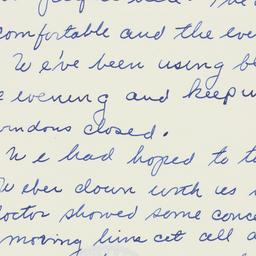 comfortable and the eve
We've been using bl
evening and keepin
indows closed.
We had hoped to t
Weber down with us
doctor showed some conce
moving him at all a